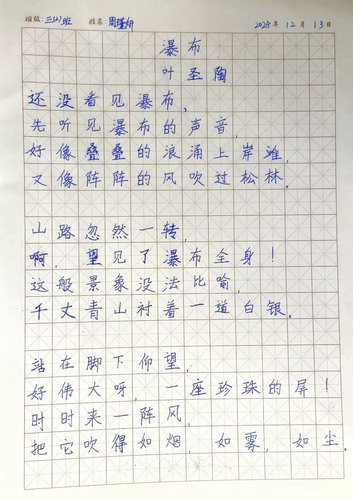 班级：三(4)班 姓名：周瑾妍 2025年12月13日
瀑布
叶圣陶
还没看见瀑布，
先听见瀑布的声音，
好像叠叠的浪涌上岸滩，
又像阵阵的风吹过松林。
山路忽然一转，
啊，望见了瀑布全身！
这般景象没法比喻，
千丈青山衬着一道白银。
站在脚下仰望，
好伟大呀，一座珍珠的屏！
时时来一阵风，
把它吹得如烟，如雾，如尘。